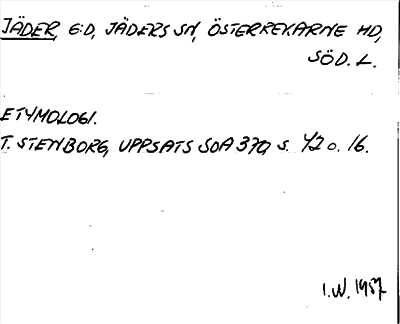 JÄDER, E:D, JÄDERS SN, ÖSTERREKARNE HD,
SÖD. L.
ETYMOLOGI.
T. STENBORG, UPPSATS SOA 370 s. 42 o. 16.
I.W. 1957